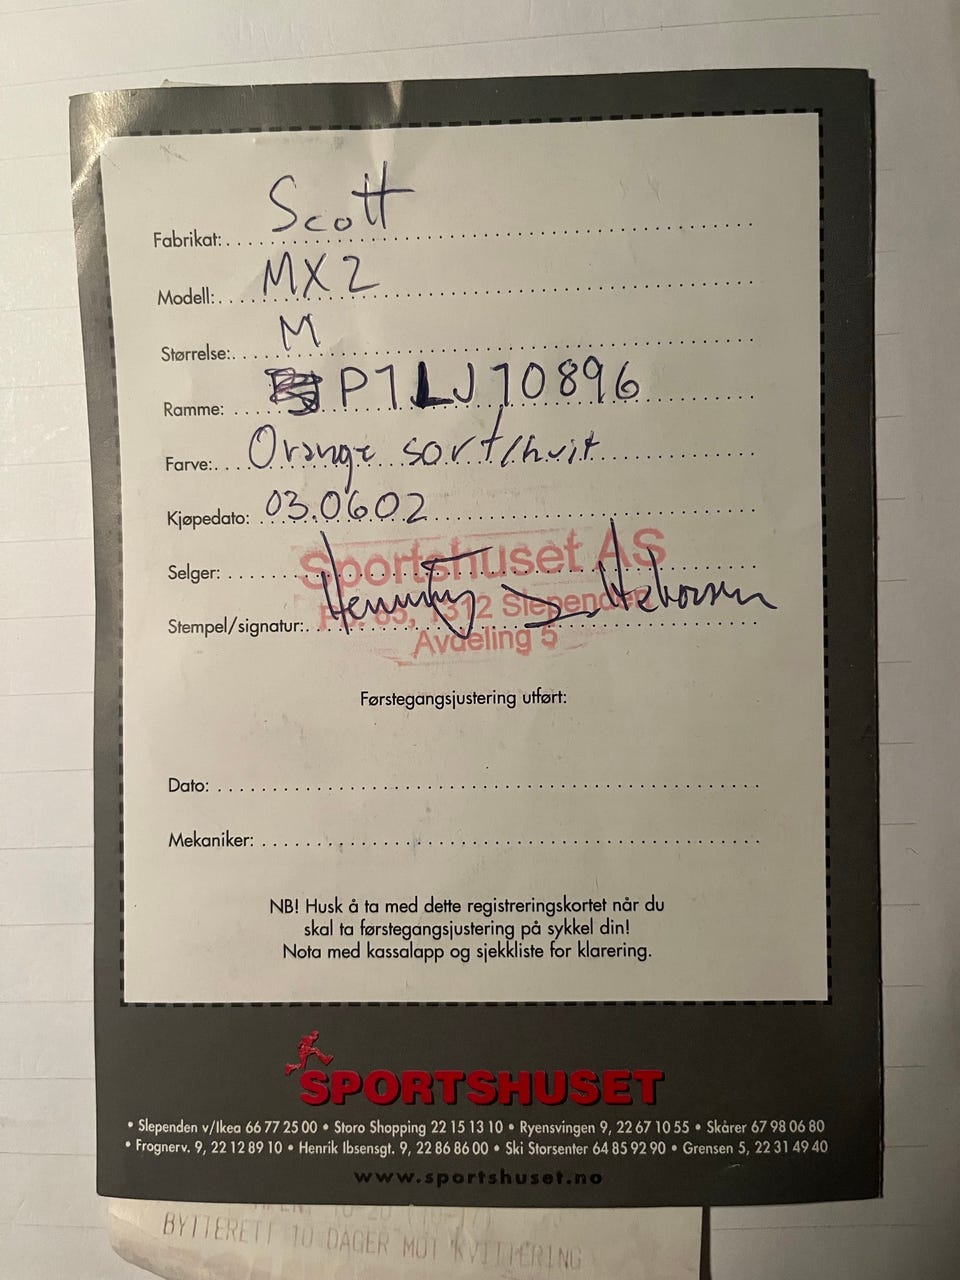 Fabrikat: Scott
Modell: MX2
Størrelse: M
Ramme: P1LJ10896
Farve: Orange sort/hvit
Kjøpedato: 03.0602
Selger:
Sportshuset AS
Stempel/signatur:
65, 1312 Slependen
Avdeling 5
Førstegangsjustering utført:
Dato:
Mekaniker:
NB! Husk å ta med dette registreringskortet når du
skal ta førstegangsjustering på sykkel din!
Nota med kassalapp og sjekkliste for klarering.
SPORTSHUSET
• Slependen v/Ikea 66 77 25 00 • Storo Shopping 22 15 13 10 • Ryensvingen 9, 22 67 10 55 • Skårer 67 98 06 80
• Frognerv. 9, 22 12 89 10 • Henrik Ibsensgt. 9, 22 86 86 00 • Ski Storsenter 64 85 92 90 • Grensen 5, 22 31 49 40
www.sportshuset.no
BYTTERETT 10 DAGER MOT KVITTERING